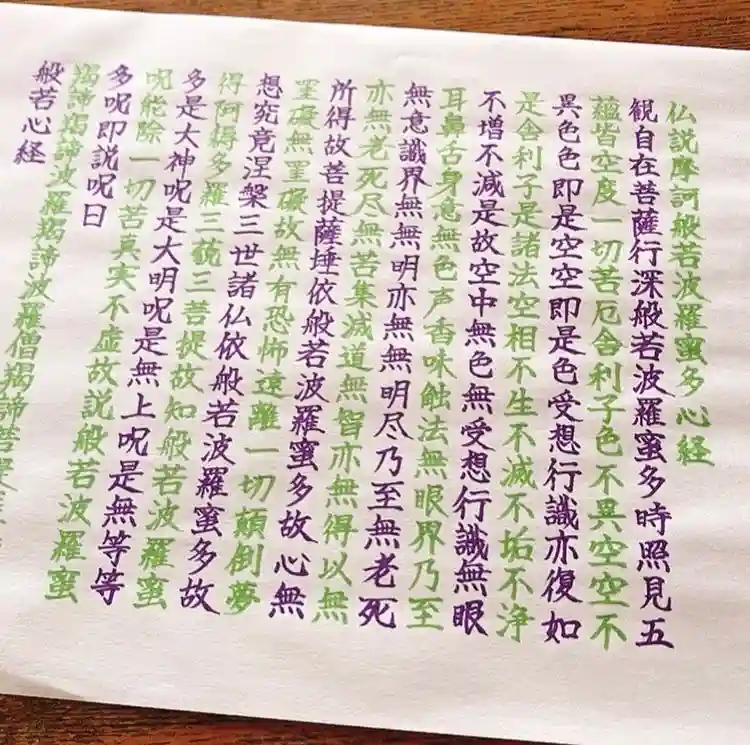 仏説摩訶般若波羅蜜多心経
観自在菩薩行深般若波羅蜜多時照見五
蘊皆空度一切苦厄舎利子色不異空空不
異色色即是空空即是色受想行識亦復如
是舎利子是諸法空相不生不滅不垢不浄
不増不減是故空中無色無受想行識無眼
耳鼻舌身意無色声香味蝕法無眼界乃至
無意識界無無明亦無無明尽乃至無老死
亦無老死尽無苦集滅道無智亦無得以無
所得故菩提薩埵依般若波羅蜜多故心無
罣礙無罣礙故無有恐怖遠離一切顛倒夢
想究竟涅槃三世諸仏依般若波羅蜜多故
得阿耨多羅三藐三菩提故知般若波羅蜜
多是大神呪是大明呪是無上呪是無等等
呪能除一切苦真実不虚故説般若波羅蜜
多呪即説呪曰
羯諦羯諦波羅羯諦波羅僧羯諦菩提
般若心経